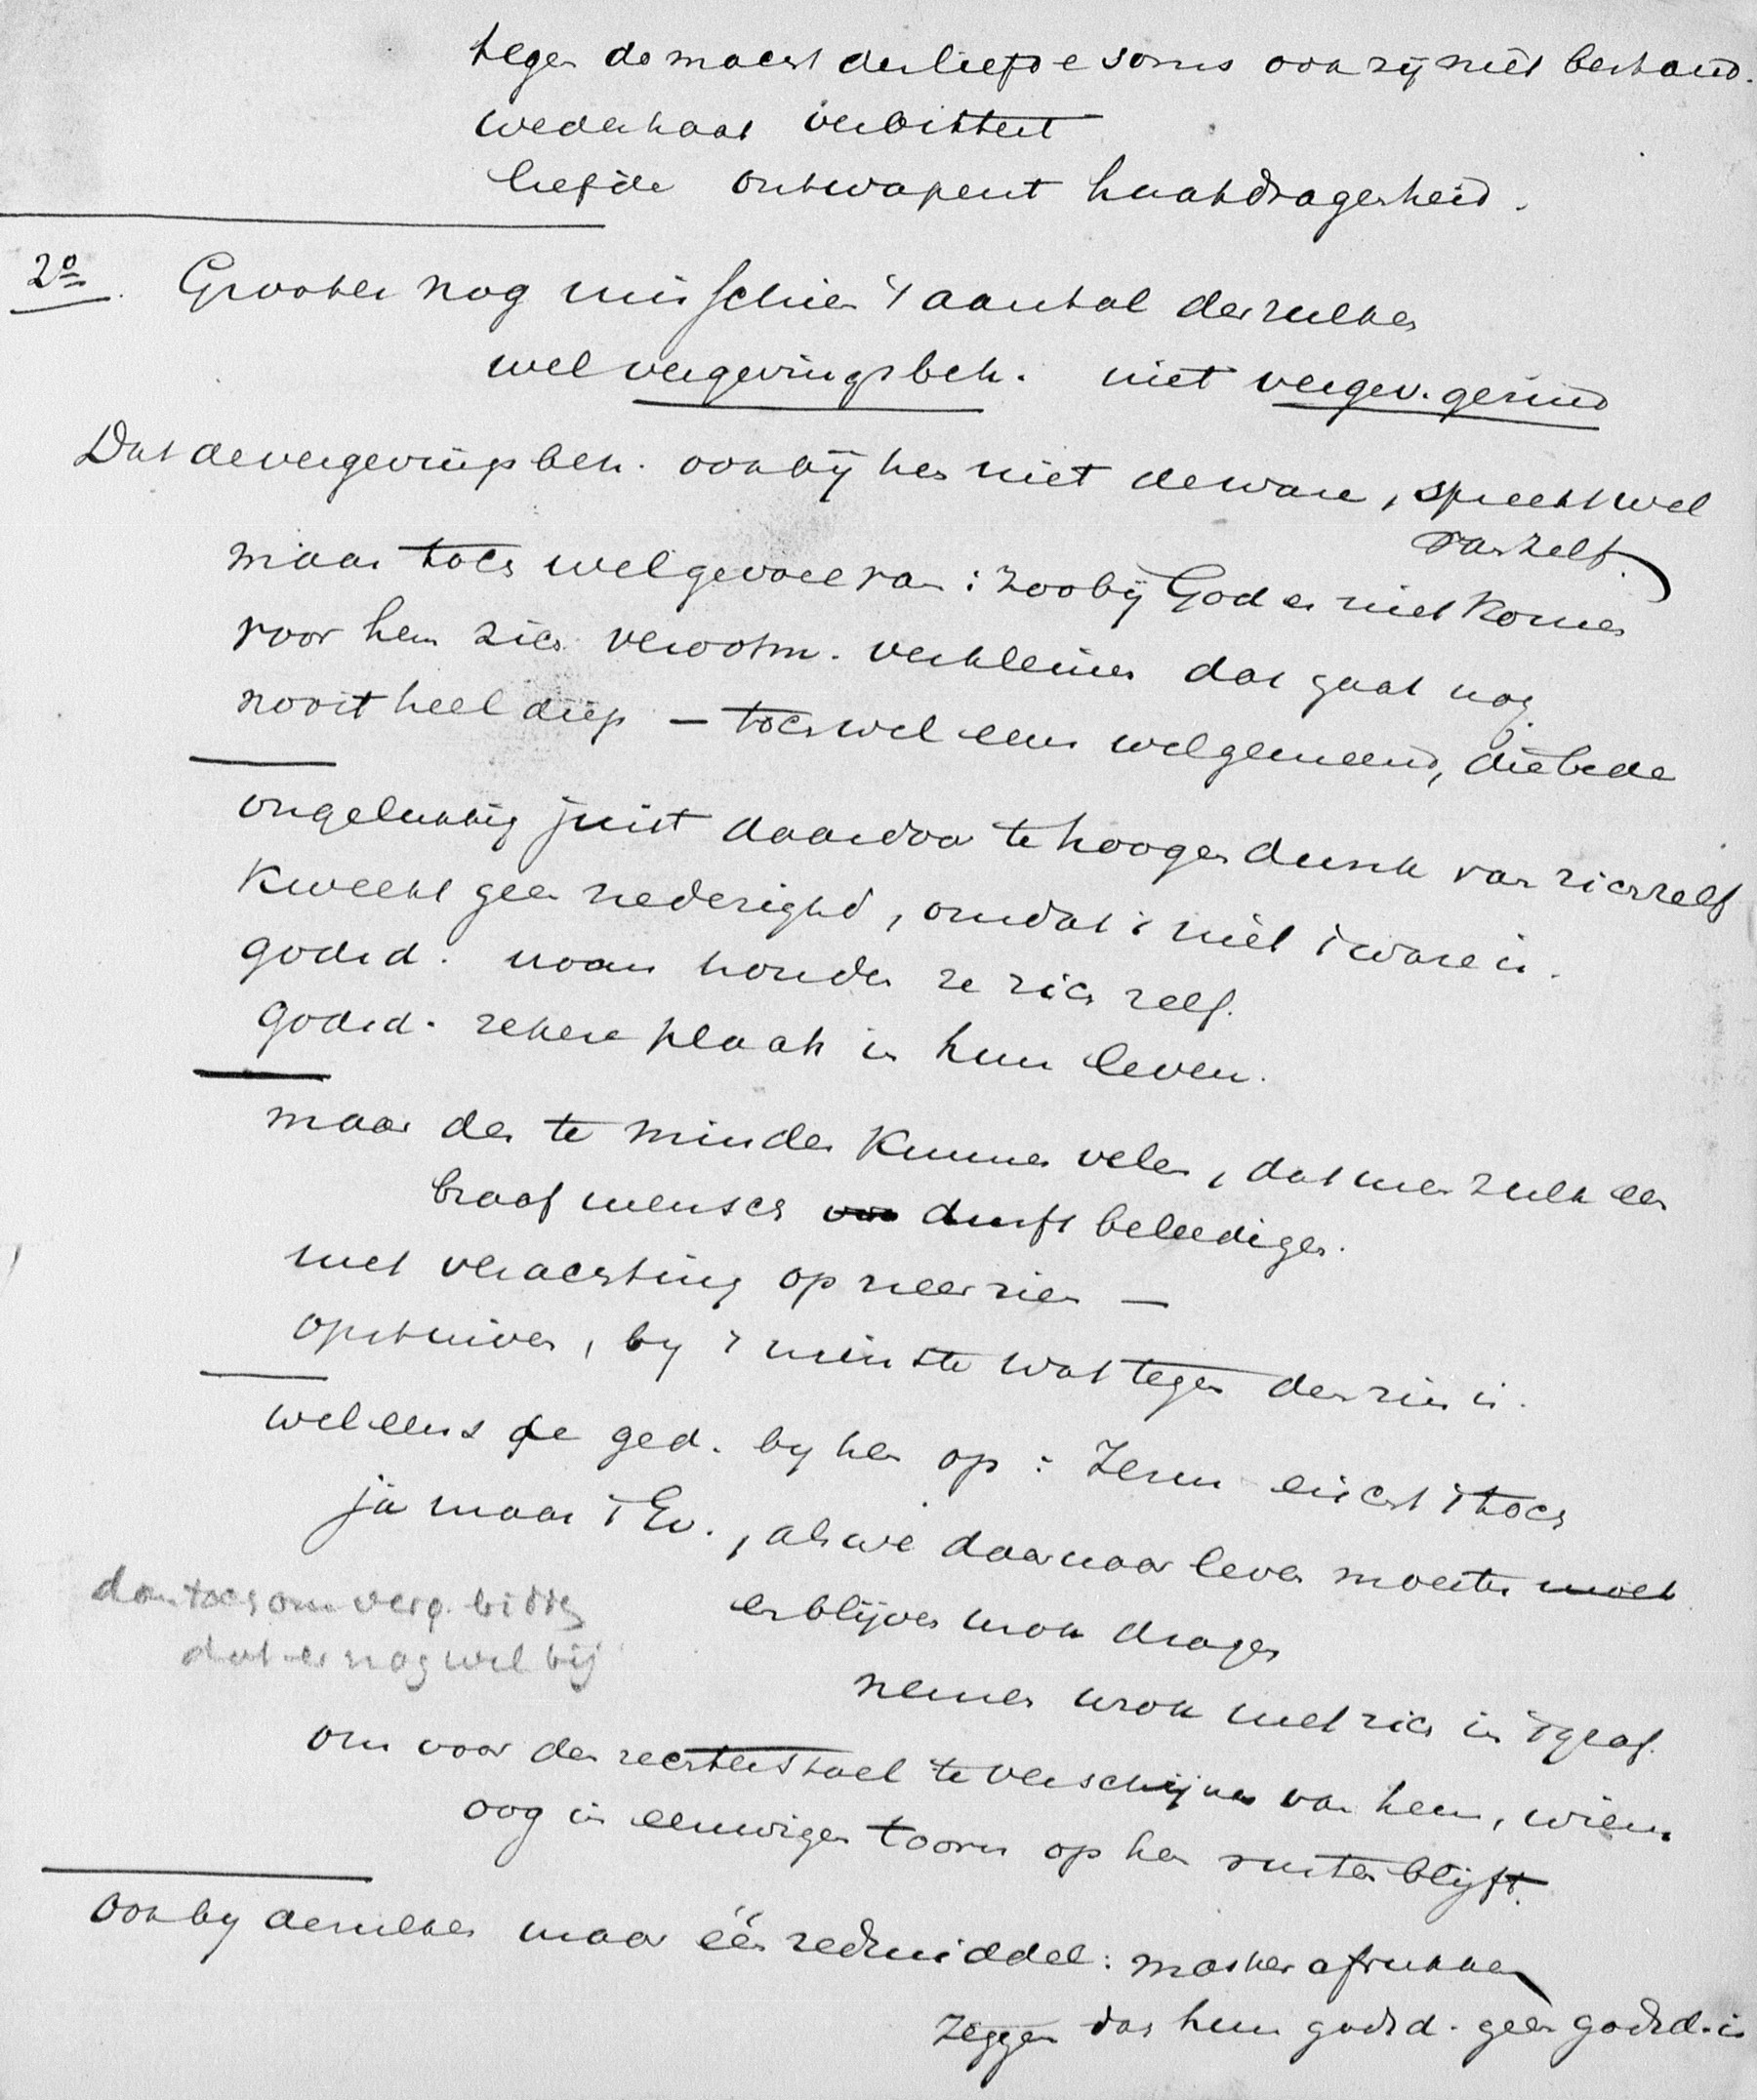 tegen de macht der liefde soms ook zij niet bestand.
wederhaat verbittert
liefde ontwapent haatdragenheid.
2º. Grooter nog misschien 't aantal derzulken
wel vergevingsbeh. niet vergev. gezind
Dat de vergevingsbeh. ook bij hen niet de ware, spreekt wel
vanzelf.
maar toch wel gevoel van: zoo bij God er niet komen
voor hem zich verootm. verkleinen dat gaat nog
nooit heel diep — toch wel eens welgemeend, die bede
ongelukkig juist daardoor te hoogen dunk van zichzelf
kweekt geen nederighd, omdat 't niet 't ware is.
godsd. naar houden ze zich zelf.
godsd. zekere plaats in hun leven.
maar des te minder kunnen velen, dat men zulk een
braaf mensch durft beleedigen.
met verachting op neerzien —
opstuiven, by 't minste wat tegen den zin is.
wel eens de ged. by hen op: Jezus eischt 't toch
ja maar 't Ev., als we daarnaar leven moesten moet
en blijven wrok dragen
dan toch om verg. bidden
dat er nog wel bij
nemen wrok met zich in 't graf.
om voor den rechterstoel te verschijnen van hem, wiens
oog in eeuwigen toorn op hen rusten blijft.
Ook by derzulken maar één redmiddel: masker afrukken
zeggen dat hun godsd. geen godsd. is